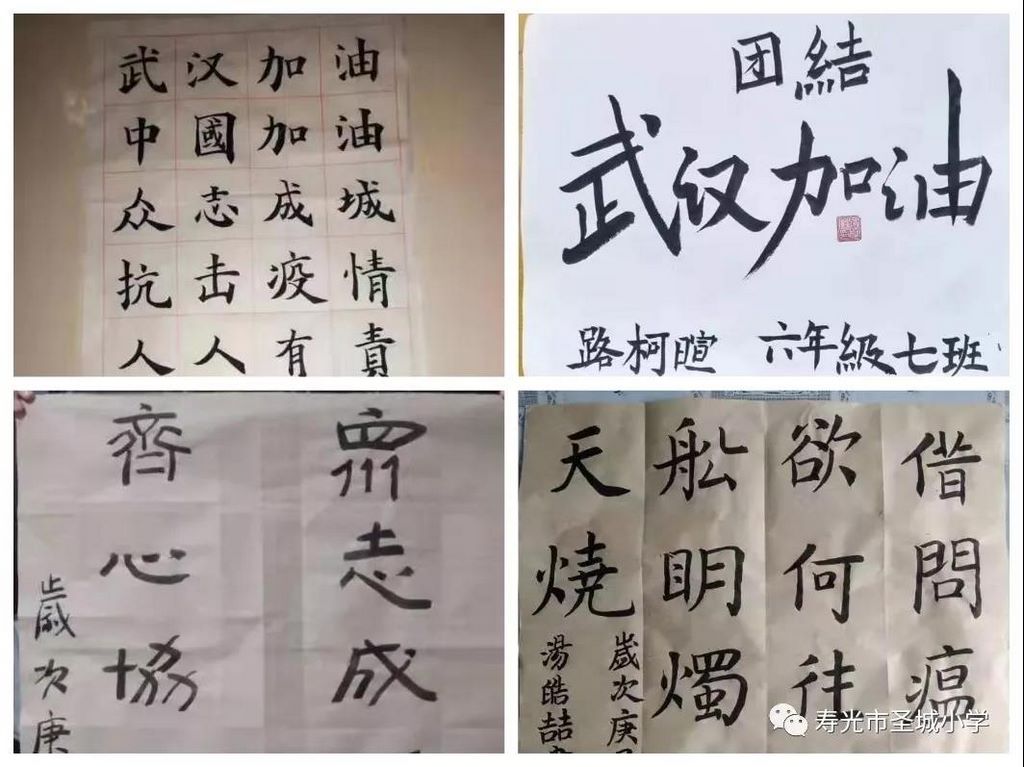 武汉加油
中國加油
众志成城
抗击疫情
人人有責
团結
武汉加油
路柯暄 六年級七班
眾志成
齊心協
歲次庚
借問瘟
欲何往
舩明燭
天燒
歲次庚
湯皓喆
寿光市圣城小学